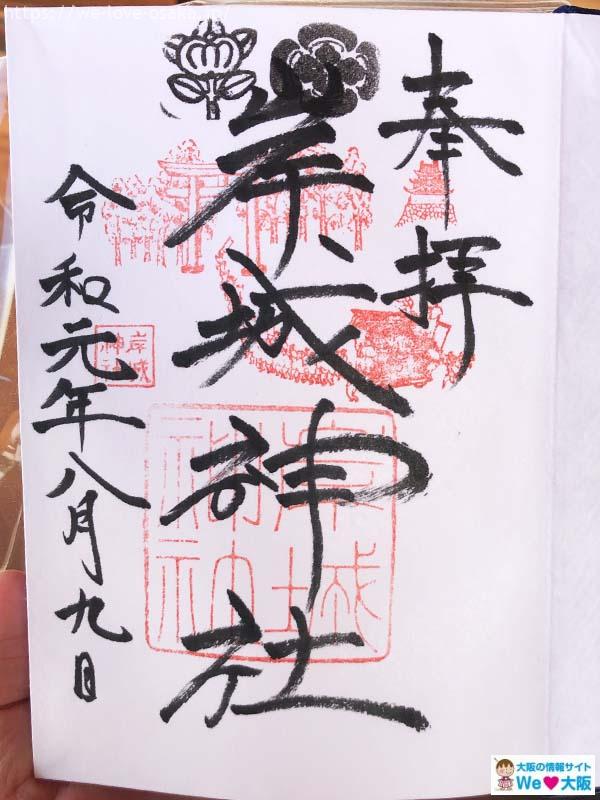 https://we-love-osaka.jp/
奉拝
岸城神社
令和元年八月九日
岸城
神社
岸城
神社
大阪の情報サイト
We♥大阪